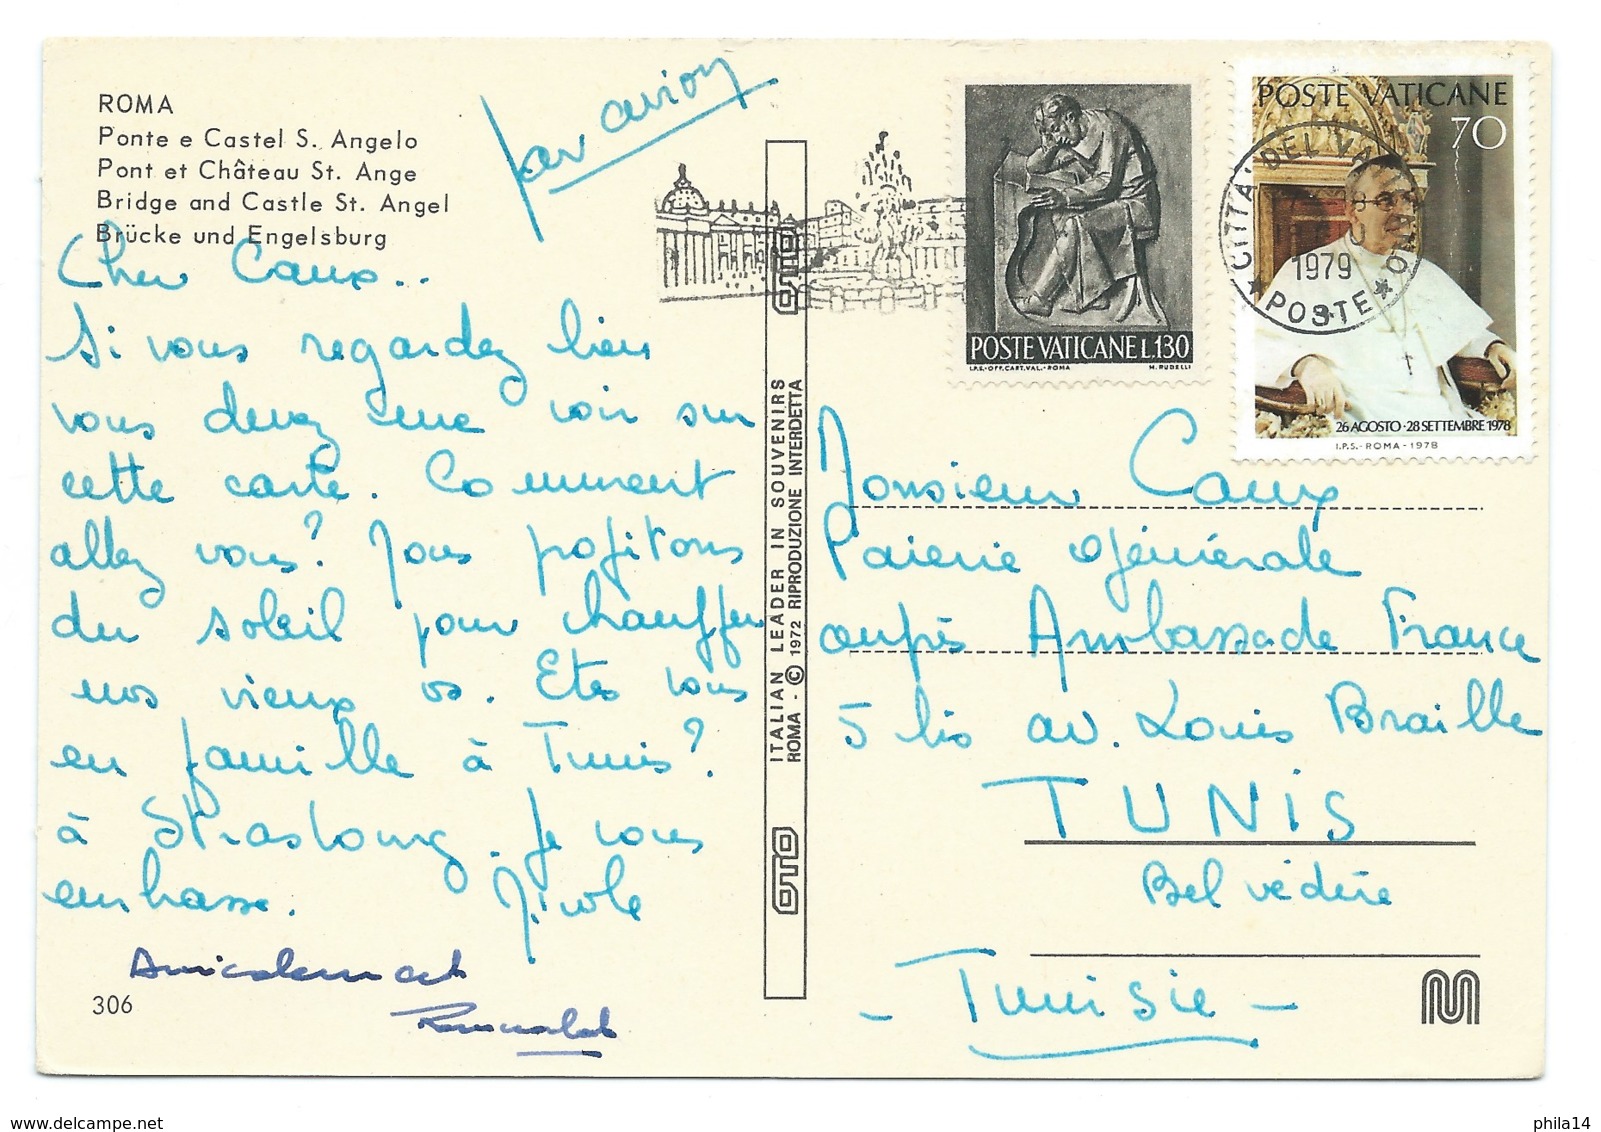 ROMA
Ponte e Castel S. Angelo
Pont et Château St. Ange
Bridge and Castle St. Angel
Brücke und Engelsburg
par avion
Cher Caux..
Si vous regardez bien
vous devez me voir sur
cette carte. Comment
allez vous? Nous profitons
du soleil pour chauffer
nos vieux os. Etes vous
en famille à Tunis?
à Strasbourg. Je vous
embrasse. Nicole
Amicalement
306
ITALIAN LEADER IN SOUVENIRS
ROMA - © 1972 RIPRODUZIONE INTERDETTA
OTO
OTO
POSTE VATICANE L.130
I.P.S.-OFF.CART.VAL.-ROMA M. RUDELLI
POSTE VATICANE
70
26 AGOSTO·28 SETTEMBRE 1978
I.P.S.-ROMA-1978
CITTA DEL VATICANO
1979
POSTE
Monsieur Caux
Paierie Générale
auprès Ambassade France
5 bis av. Louis Braille
TUNIS
Belvédère
- Tunisie -
phila14